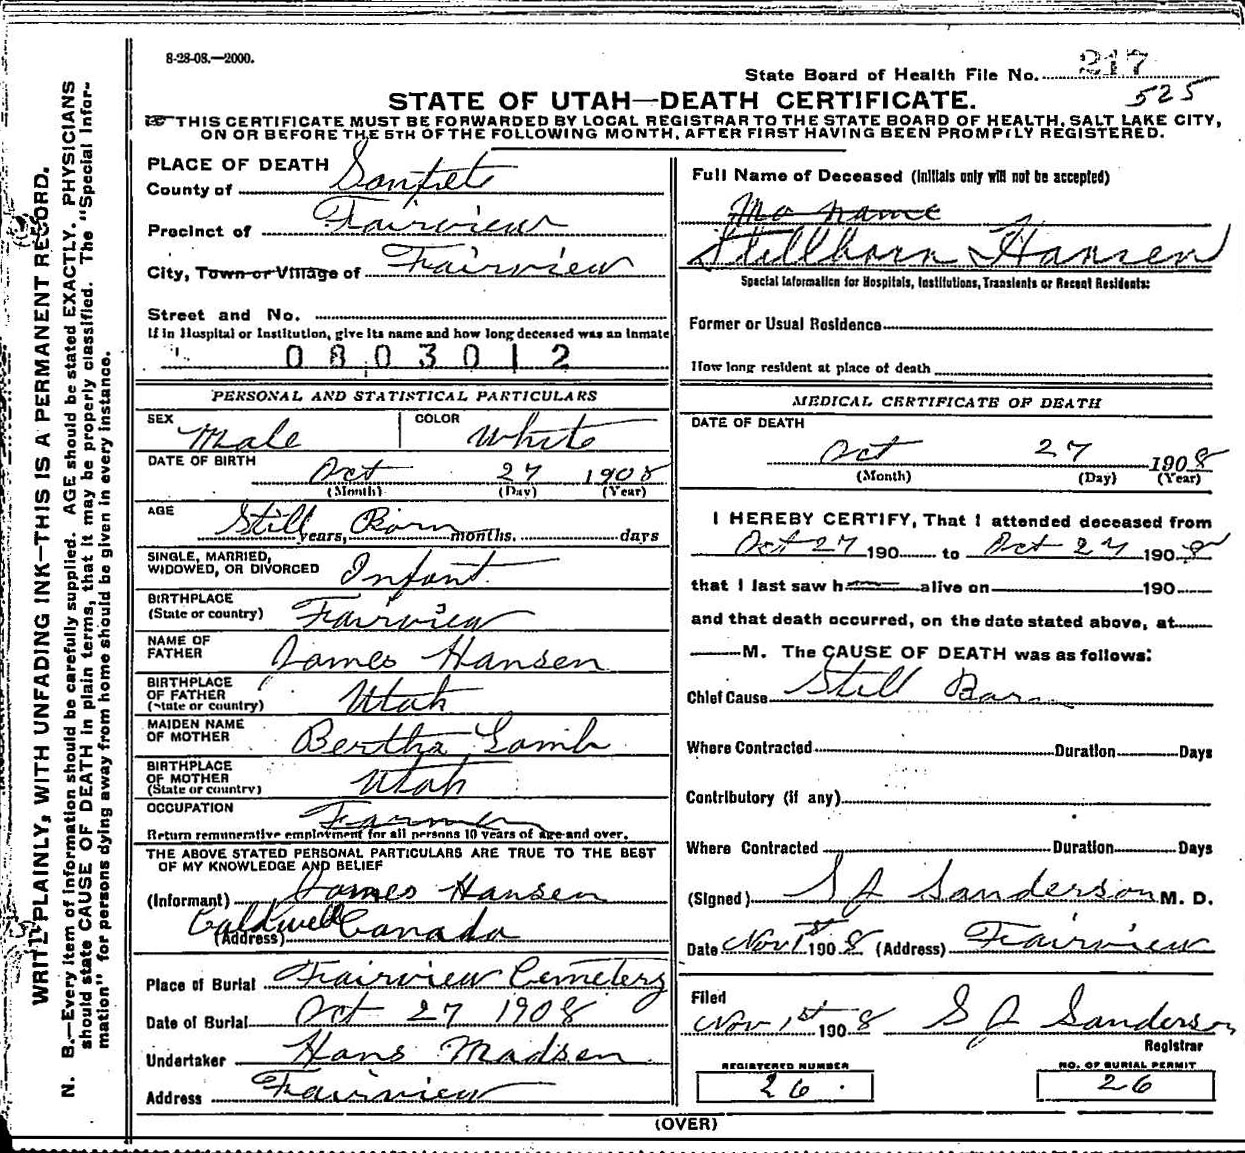 8-28-08.—2000.
State Board of Health File No. 217
525
STATE OF UTAH—DEATH CERTIFICATE.
THIS CERTIFICATE MUST BE FORWARDED BY LOCAL REGISTRAR TO THE STATE BOARD OF HEALTH, SALT LAKE CITY,
ON OR BEFORE THE 5TH OF THE FOLLOWING MONTH, AFTER FIRST HAVING BEEN PROMPTLY REGISTERED.
WRITE PLAINLY, WITH UNFADING INK—THIS IS A PERMANENT RECORD.
N. B.—Every item of information should be carefully supplied. AGE should be stated EXACTLY. PHYSICIANS
should state CAUSE OF DEATH in plain terms, that it may be properly classified. The "Special Infor-
mation" for persons dying away from home should be given in every instance.
PLACE OF DEATH
County of Sanpete
Precinct of Fairview
City, Town or Village of Fairview
Street and No.
If in Hospital or Institution, give its name and how long deceased was an inmate
0803012
PERSONAL AND STATISTICAL PARTICULARS
SEX Male COLOR White
DATE OF BIRTH Oct 27 1908
(Month) (Day) (Year)
AGE Still years, Born months. days
SINGLE, MARRIED,
WIDOWED, OR DIVORCED Infant
BIRTHPLACE
(State or country) Fairview
NAME OF
FATHER James Hansen
BIRTHPLACE
OF FATHER
(State or country) Utah
MAIDEN NAME
OF MOTHER Bertha Lamb
BIRTHPLACE
OF MOTHER
(State or country) Utah
OCCUPATION Farmer
Return remunerative employment for all persons 10 years of age and over.
THE ABOVE STATED PERSONAL PARTICULARS ARE TRUE TO THE BEST
OF MY KNOWLEDGE AND BELIEF
(Informant) James Hansen
(Address) Caldwell Canada
Place of Burial Fairview Cemetery
Date of Burial Oct 27 1908
Undertaker Hans Madsen
Address Fairview
Full Name of Deceased (Initials only will not be accepted)
No name
Stillborn Hansen
Special Information for Hospitals, Institutions, Transients or Recent Residents:
Former or Usual Residence
How long resident at place of death
MEDICAL CERTIFICATE OF DEATH
DATE OF DEATH
Oct 27 1908
(Month) (Day) (Year)
I HEREBY CERTIFY, That I attended deceased from
Oct 27 190 to Oct 27 1908
that I last saw h alive on 190
and that death occurred, on the date stated above, at
M. The CAUSE OF DEATH was as follows:
Chief Cause Still Born
Where Contracted Duration Days
Contributory (if any)
Where Contracted Duration Days
(Signed) S J Sanderson M. D.
Date Nov 1st 1908 (Address) Fairview
Filed
Nov 1st 1908 S J Sanderson
Registrar
REGISTERED NUMBER
26
NO. OF BURIAL PERMIT
26
(OVER)